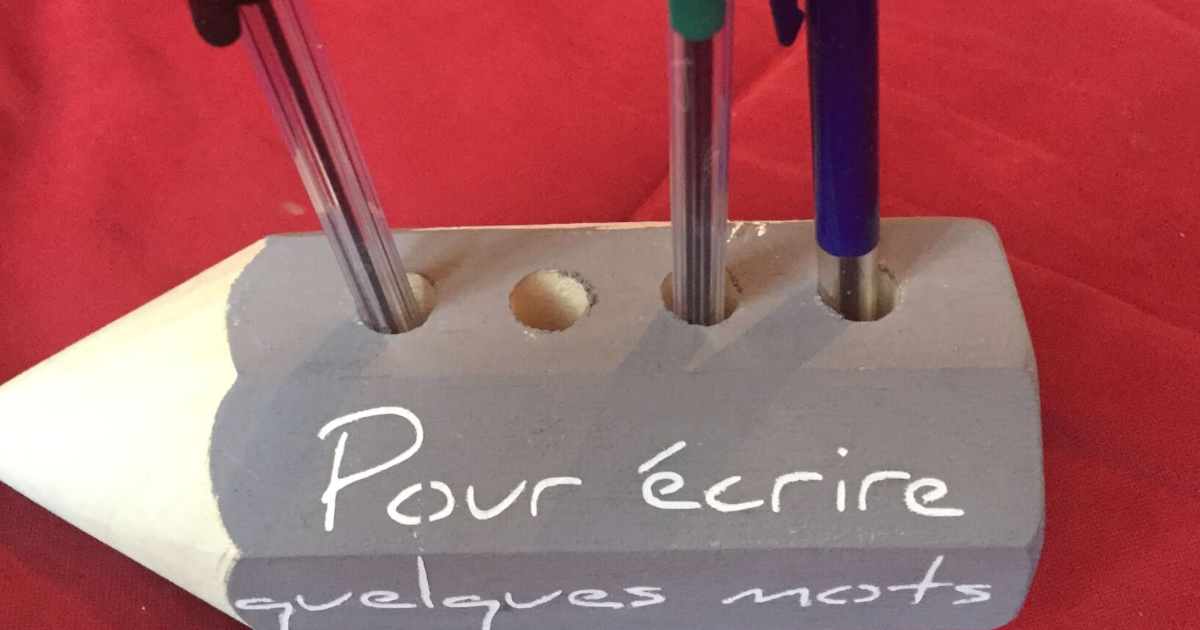 Pour écrire
quelques mots